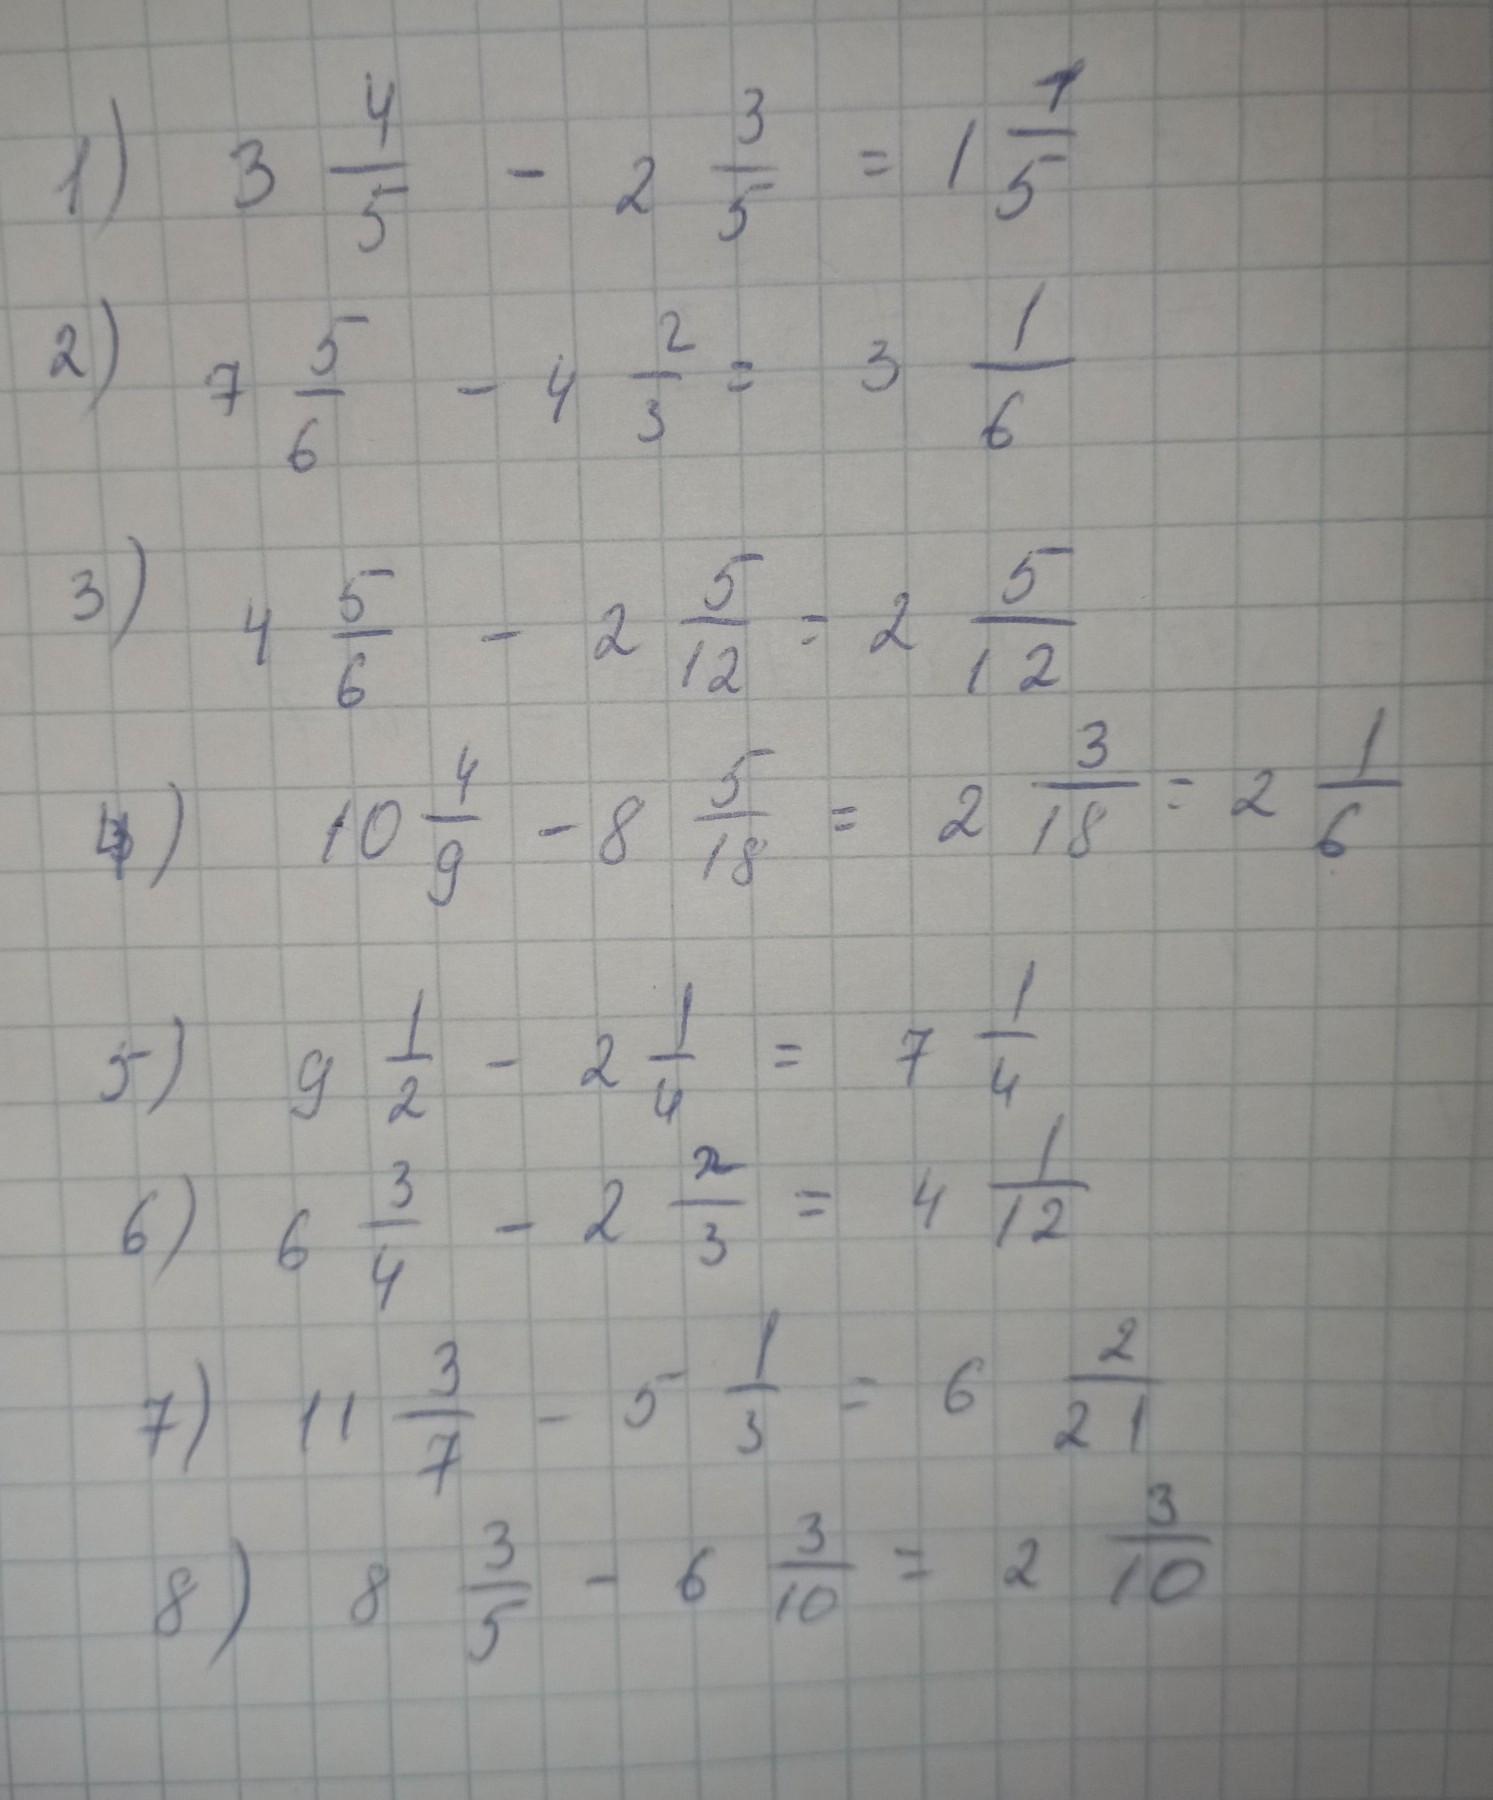 1) 3 4/5 - 2 3/5 = 1 1/5
2) 7 5/6 - 4 2/3 = 3 1/6
3) 4 5/6 - 2 5/12 = 2 5/12
4) 10 4/9 - 8 5/18 = 2 3/18 = 2 1/6
5) 9 1/2 - 2 1/4 = 7 1/4
6) 6 3/4 - 2 2/3 = 4 1/12
7) 11 3/7 - 5 1/3 = 6 2/21
8) 8 3/5 - 6 3/10 = 2 3/10